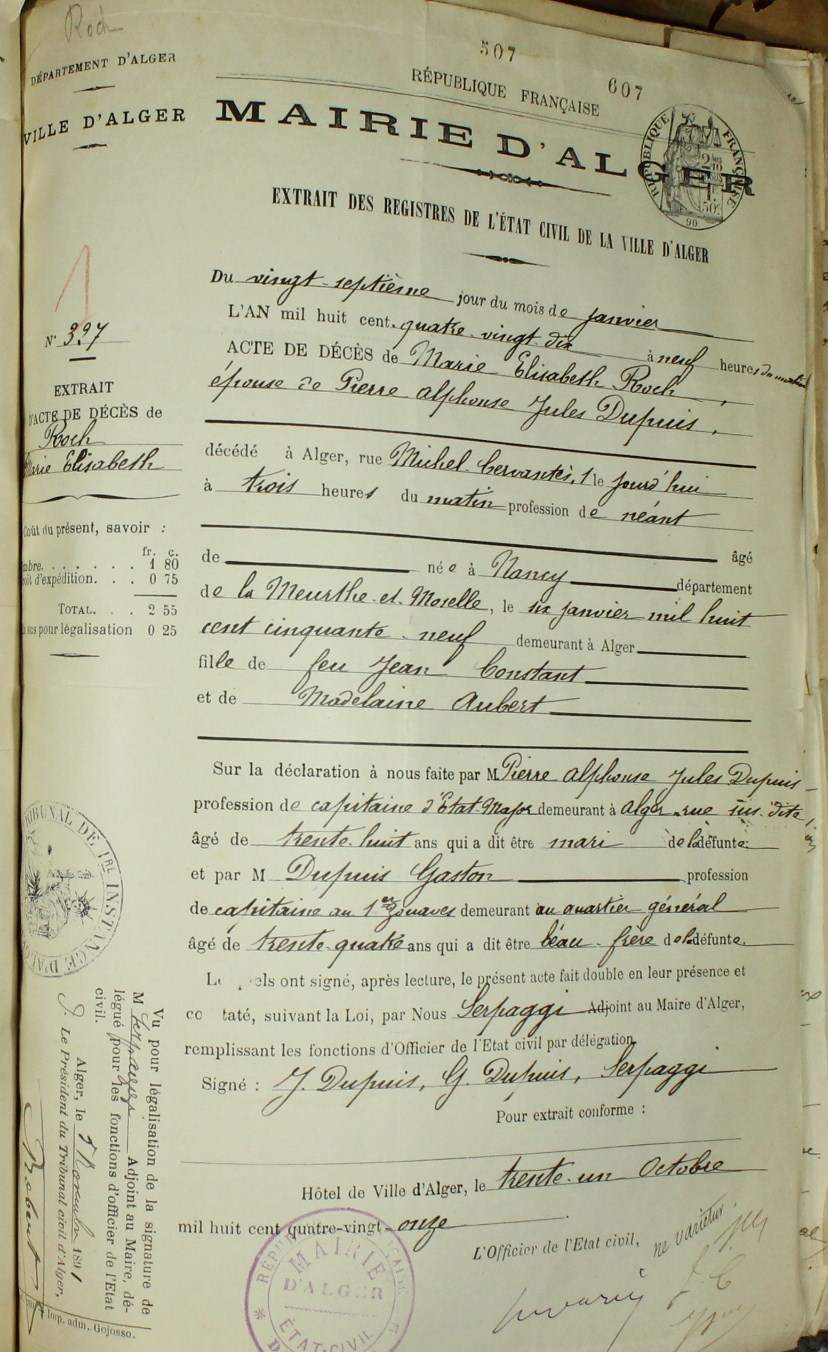 Roch
507
607
DÉPARTEMENT D'ALGER
VILLE D'ALGER
RÉPUBLIQUE FRANÇAISE
MAIRIE D'ALGER
RÉPUBLIQUE FRANÇAISE
EXTRAIT DES REGISTRES DE L'ÉTAT CIVIL DE LA VILLE D'ALGER
1
N° 397
EXTRAIT
D'ACTE DE DÉCÈS de
Roch
Marie Elisabeth
Coût du présent, savoir :
fr. c.
1 80
d'expédition. . . 0 75
TOTAL. . . 2 55
pour légalisation 0 25
Du vingt-septième jour du mois de janvier
L'AN mil huit cent quatre-vingt dix à neuf heures du matin
ACTE DE DÉCÈS de Marie Elisabeth Roch,
épouse de Pierre Alphonse Jules Dupuis,
décédé à Alger, rue Michel Cervantès, 1 le jourd'hui
à trois heures du matin profession de néant
âgé
de née à Nancy département
de la Meurthe-et-Moselle, le six janvier mil huit
cent cinquante-neuf demeurant à Alger
fille de feu Jean Constant
et de Madelaine Aubert
Sur la déclaration à nous faite par M Pierre Alphonse Jules Dupuis
profession de capitaine d'Etat-Major demeurant à Alger rue sus-dite
âgé de trente-huit ans qui a dit être mari de la défunte
et par M Dupuis Gaston profession
de capitaine au 1er Zouaves demeurant au quartier général
âgé de trente-quatre ans qui a dit être beau-frère de la défunte.
ont signé, après lecture, le présent acte fait double en leur présence et
suivant la Loi, par Nous Serpaggi Adjoint au Maire d'Alger,
remplissant les fonctions d'Officier de l'Etat civil par délégation
Signé : J. Dupuis, G. Dupuis, Serpaggi
Pour extrait conforme :
Hôtel de Ville d'Alger, le trente-un Octobre
mil huit cent quatre-vingt-onze
L'Officier de l'Etat civil,
ne varietur
MAIRIE
D'ALGER
ÉTAT-CIVIL
TRIBUNAL DE 1RE INSTANCE
Vu pour légalisation de la signature de
M Adjoint au Maire, dé-
légué pour les fonctions d'officier de l'Etat
civil.
Alger, le 1891
Le Président du Tribunal civil d'Alger,
Imp. adm. Gojosso.